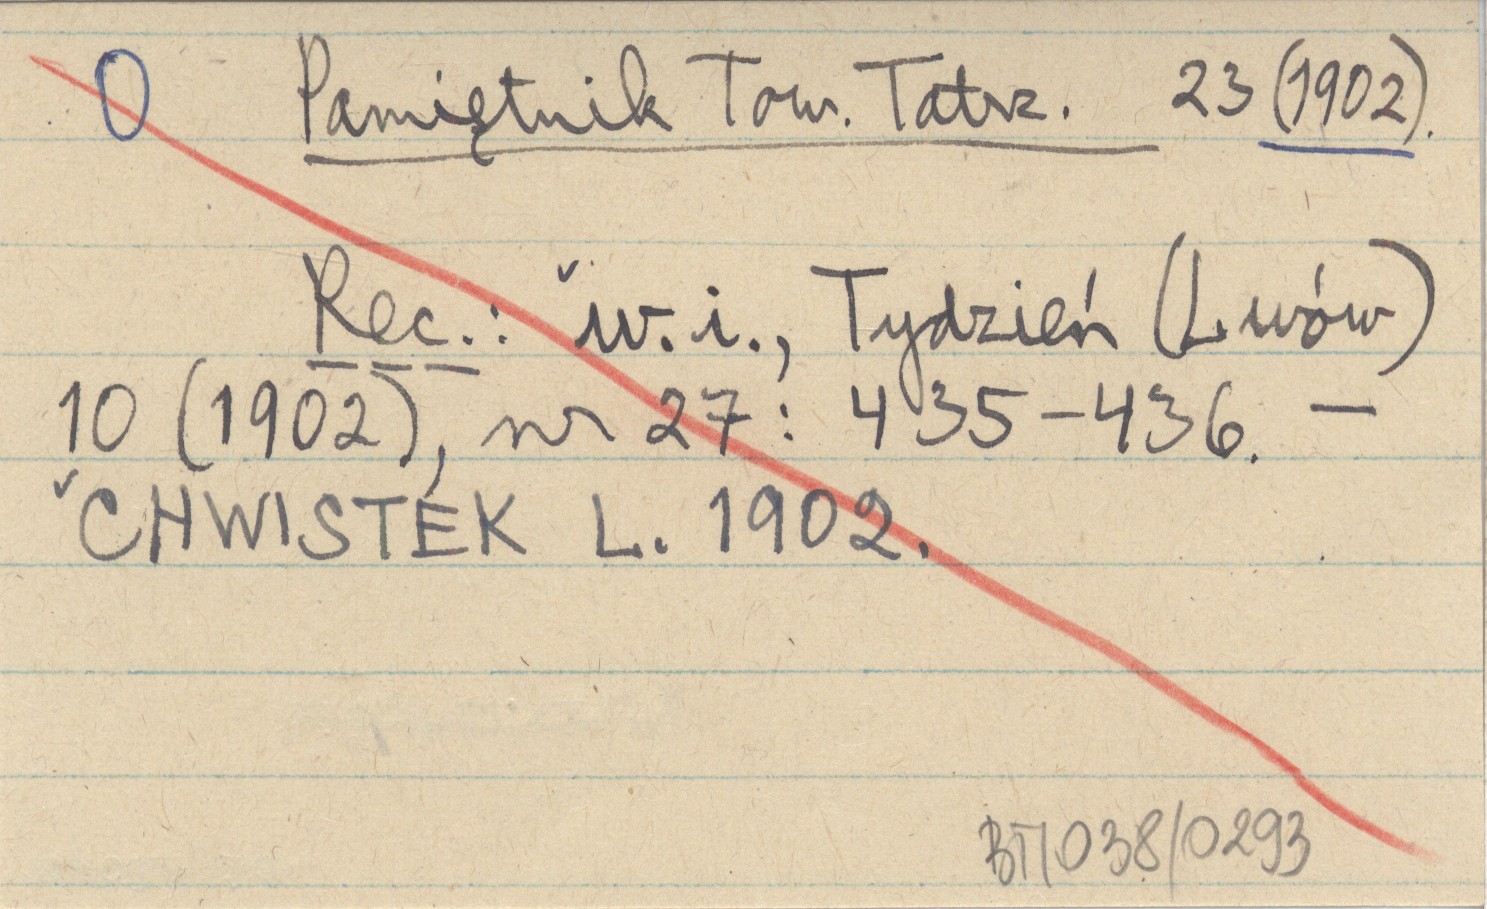 0 Pamiętnik Tow. Tatrz. 23 (1902).
Rec.: w.i., Tydzień (Lwów)
10 (1902), nr 27: 435-436. —
CHWISTEK L. 1902.
BTT/038/0293